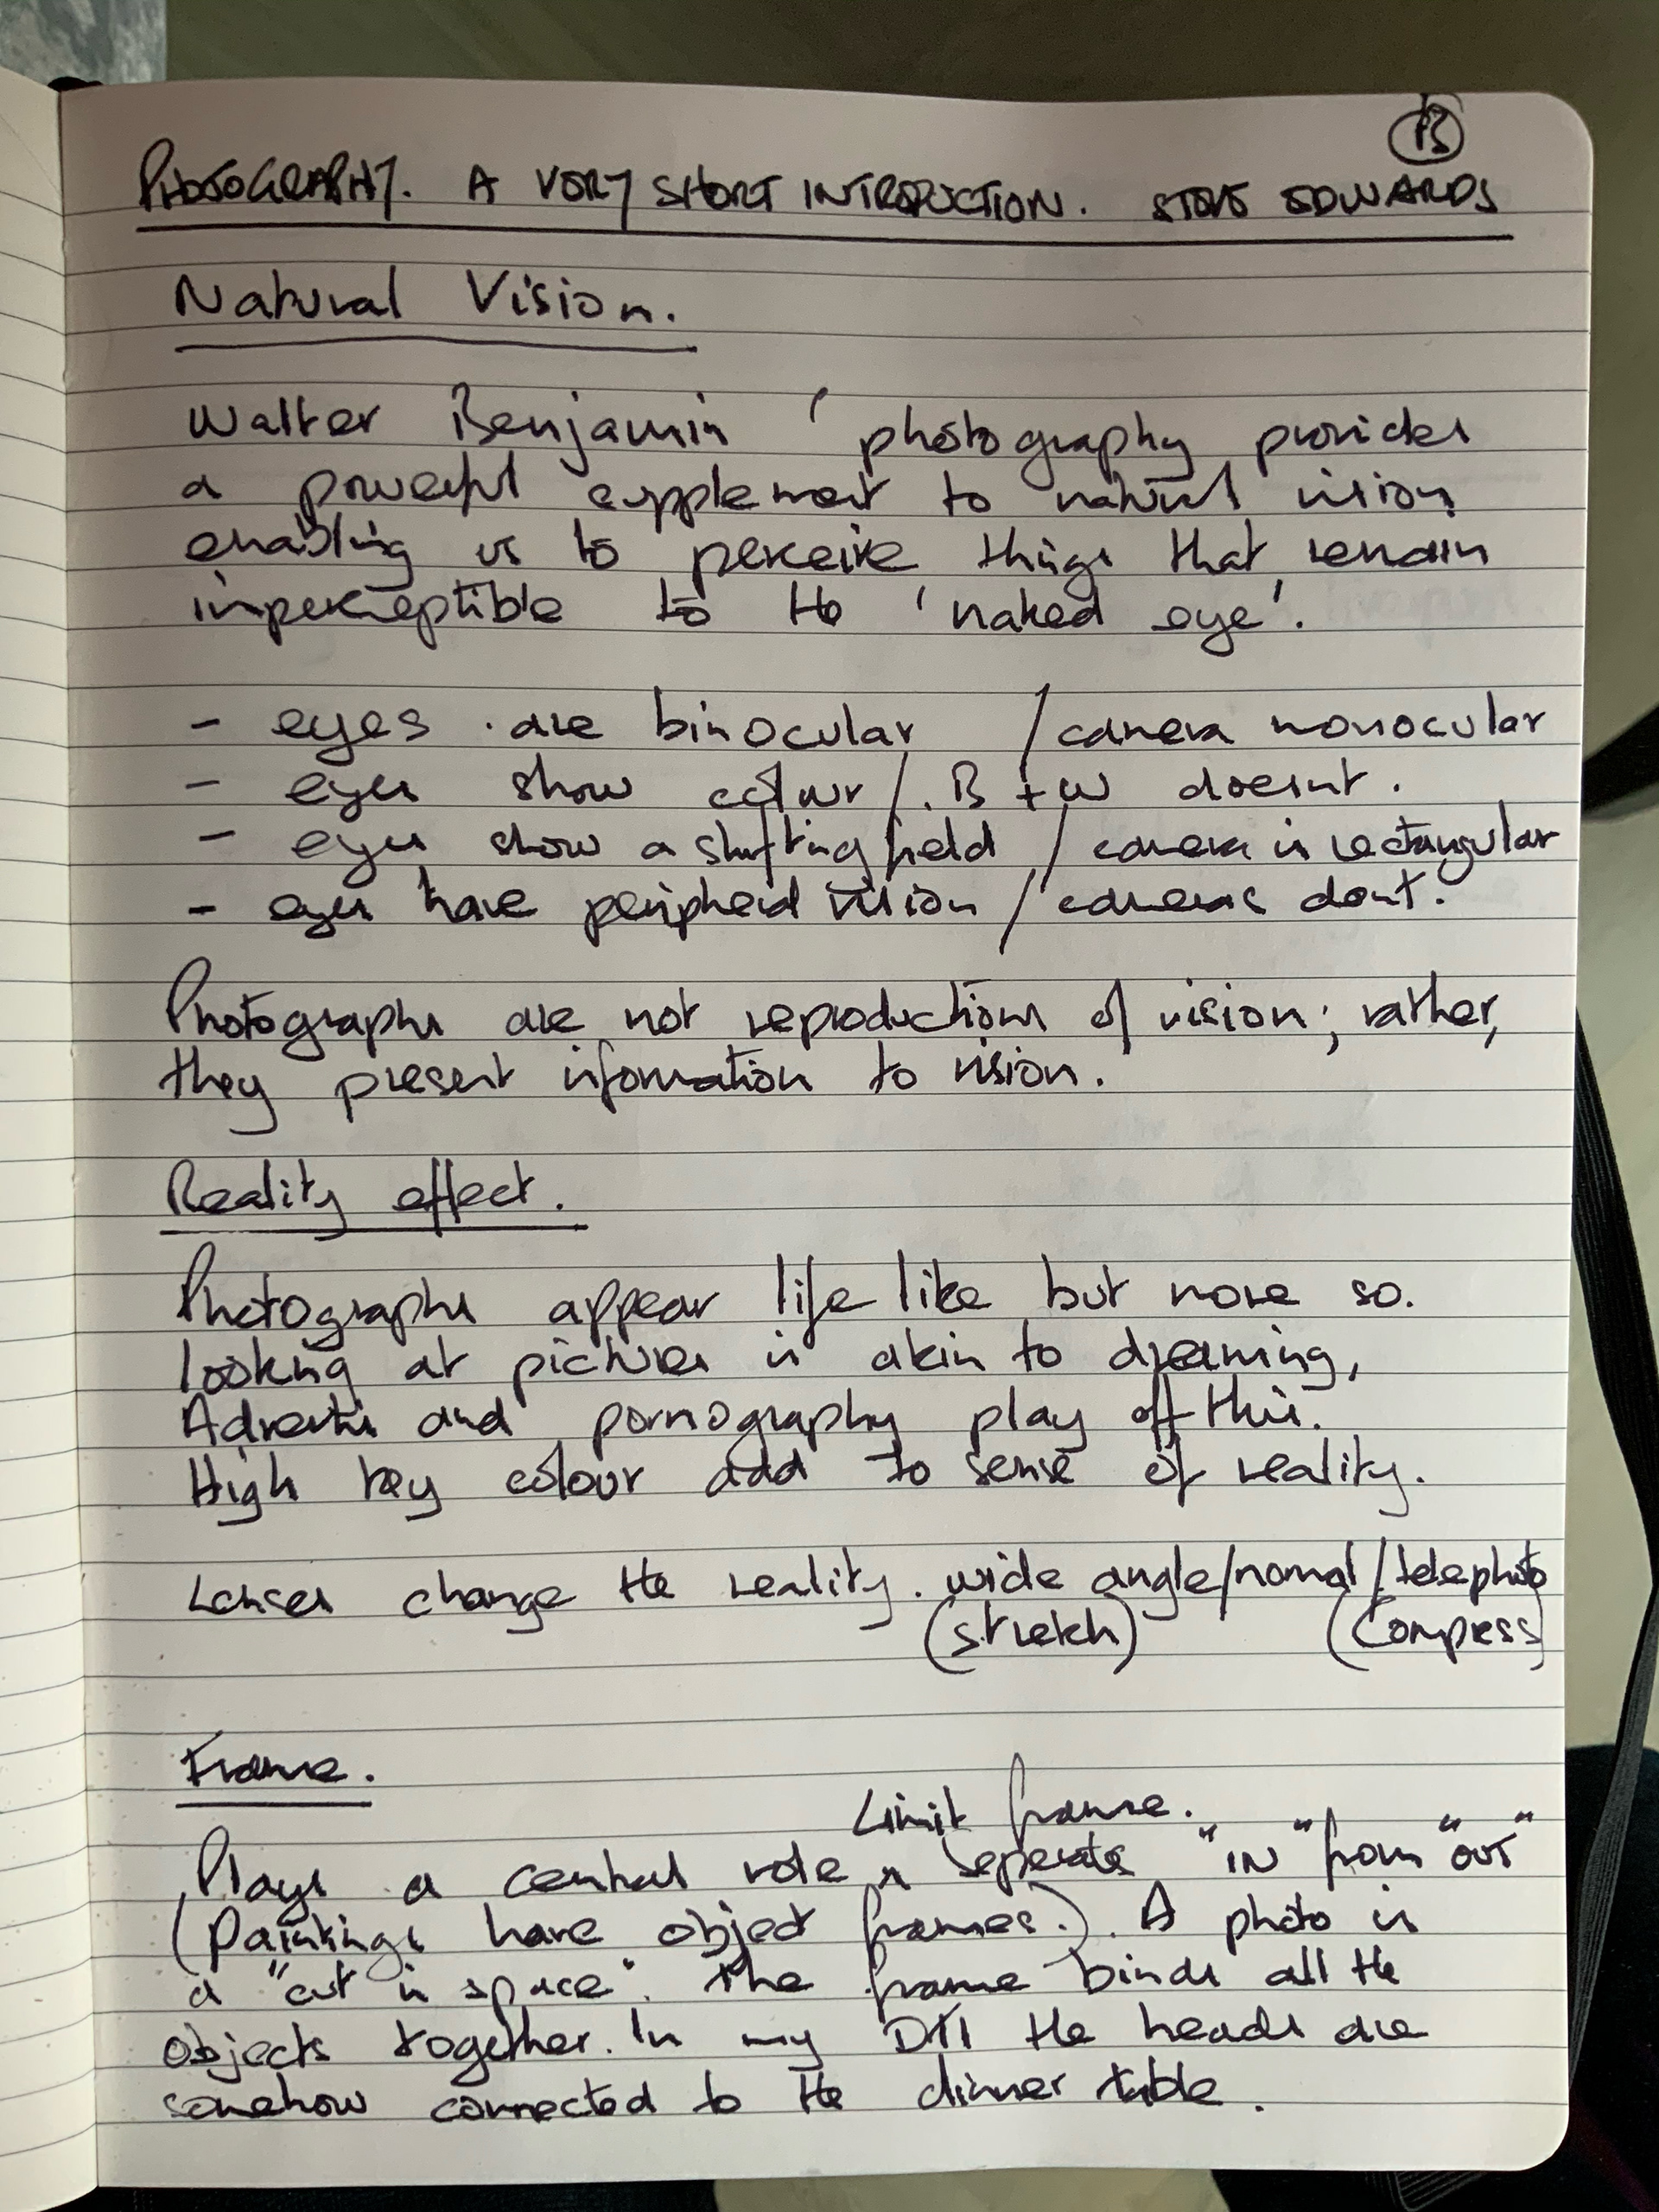 PHOTOGRAPHY. A VERY SHORT INTRODUCTION. STEVE EDWARDS
Natural Vision.
Walter Benjamin ' photography provides
a powerful supplement to natural vision,
enabling us to perceive things that remain
imperceptible to the 'naked eye'.
- eyes are binocular / camera monocular
- eyes show colour / B + W doesnt.
- eyes show a shifting field / camera is rectangular
- eyes have peripheral vision / cameras dont.
Photographs are not reproductions of vision; rather,
they present information to vision.
Reality effect.
Photographs appear life like but more so.
Looking at pictures is akin to dreaming,
Adverts and pornography play off this.
High key colour add to sense of reality.
Lenses change the reality. wide angle/normal/telephoto
(stretch) (compress)
Frame.
Limit frame.
Plays a central role ^ seperates "IN" from "OUT"
(Paintings have object frames.). A photo is
a "cut in space". The frame binds all the
objects together. In my DTI the heads are
somehow connected to the dinner table.